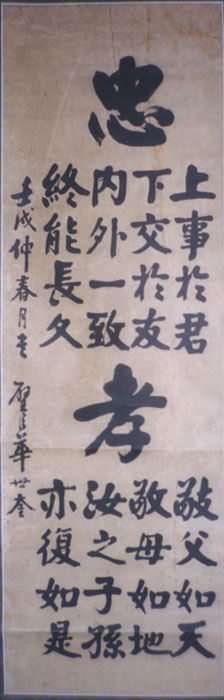 忠
上事於君
下交於友
內外一致
終能長久
孝
敬父如天
敬母如地
汝之子孫
亦復如是
壬戌仲春月 璧臣華世奎